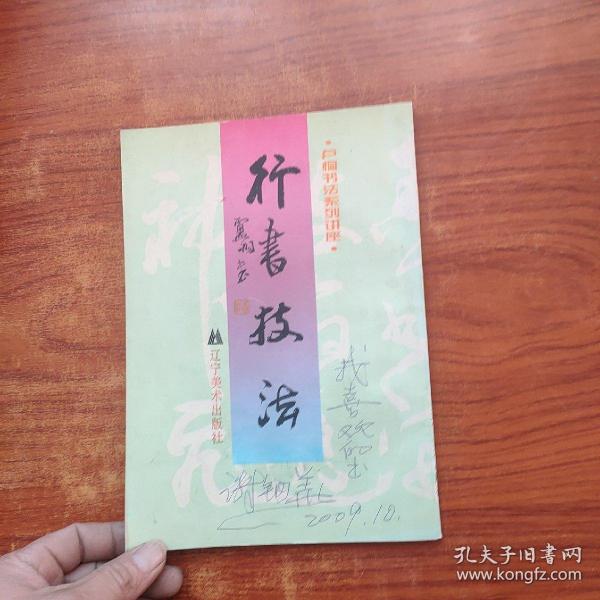 •卢桐书法系列讲座•
行书技法
辽宁美术出版社
我喜欢的书
2009.10.
孔夫子旧书网
www.kongfz.com